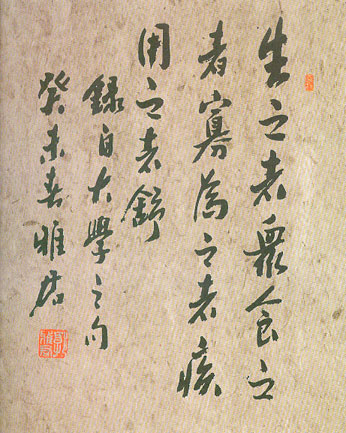 生之者眾食之
者寡為之者疾
用之者舒
録自大學之句
癸未春